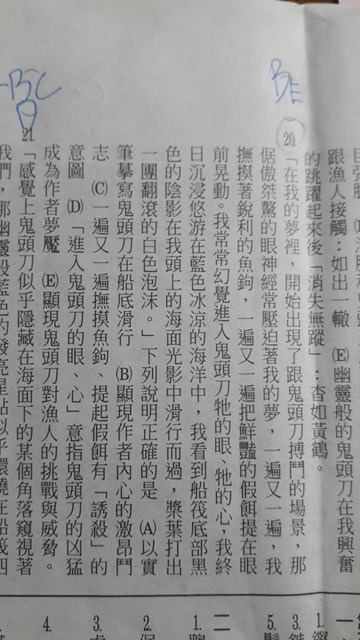 跟漁人接觸：如出一轍 (E)幽靈般的鬼頭刀在我興奮
的跳躍起來後「消失無蹤」：杳如黃鶴。
BE
20.「在我的夢裡，開始出現了跟鬼頭刀搏鬥的場景，那
倨傲桀驁的眼神經常壓迫著我的夢，一遍又一遍，我
撫摸著銳利的魚鉤，一遍又一遍把鮮豔的假餌提在眼
前晃動。我常常幻覺進入鬼頭刀牠的眼、牠的心，我終
日沉浸悠游在藍色冰涼的海洋中，我看到船筏底部黑
色的陰影在我頭上的海面光影中滑行而過，槳葉打出
一團翻滾的白色泡沫。」下列說明正確的是 (A)以實
筆摹寫鬼頭刀在船底滑行 (B)顯現作者內心的激昂鬥
志 (C)一遍又一遍撫摸魚鉤、提起假餌有「誘殺」的
意圖 (D)「進入鬼頭刀的眼、心」意指鬼頭刀的凶猛
成為作者夢魘 (E)顯現鬼頭刀對漁人的挑戰與威脅。
21.「感覺上鬼頭刀似乎隱藏在海面下的某個角落窺視著
我們，那幽靈般藍色的發亮星點似乎環繞在船筏四
一
1.
3.
5.
二
1.
2.
3.
4.